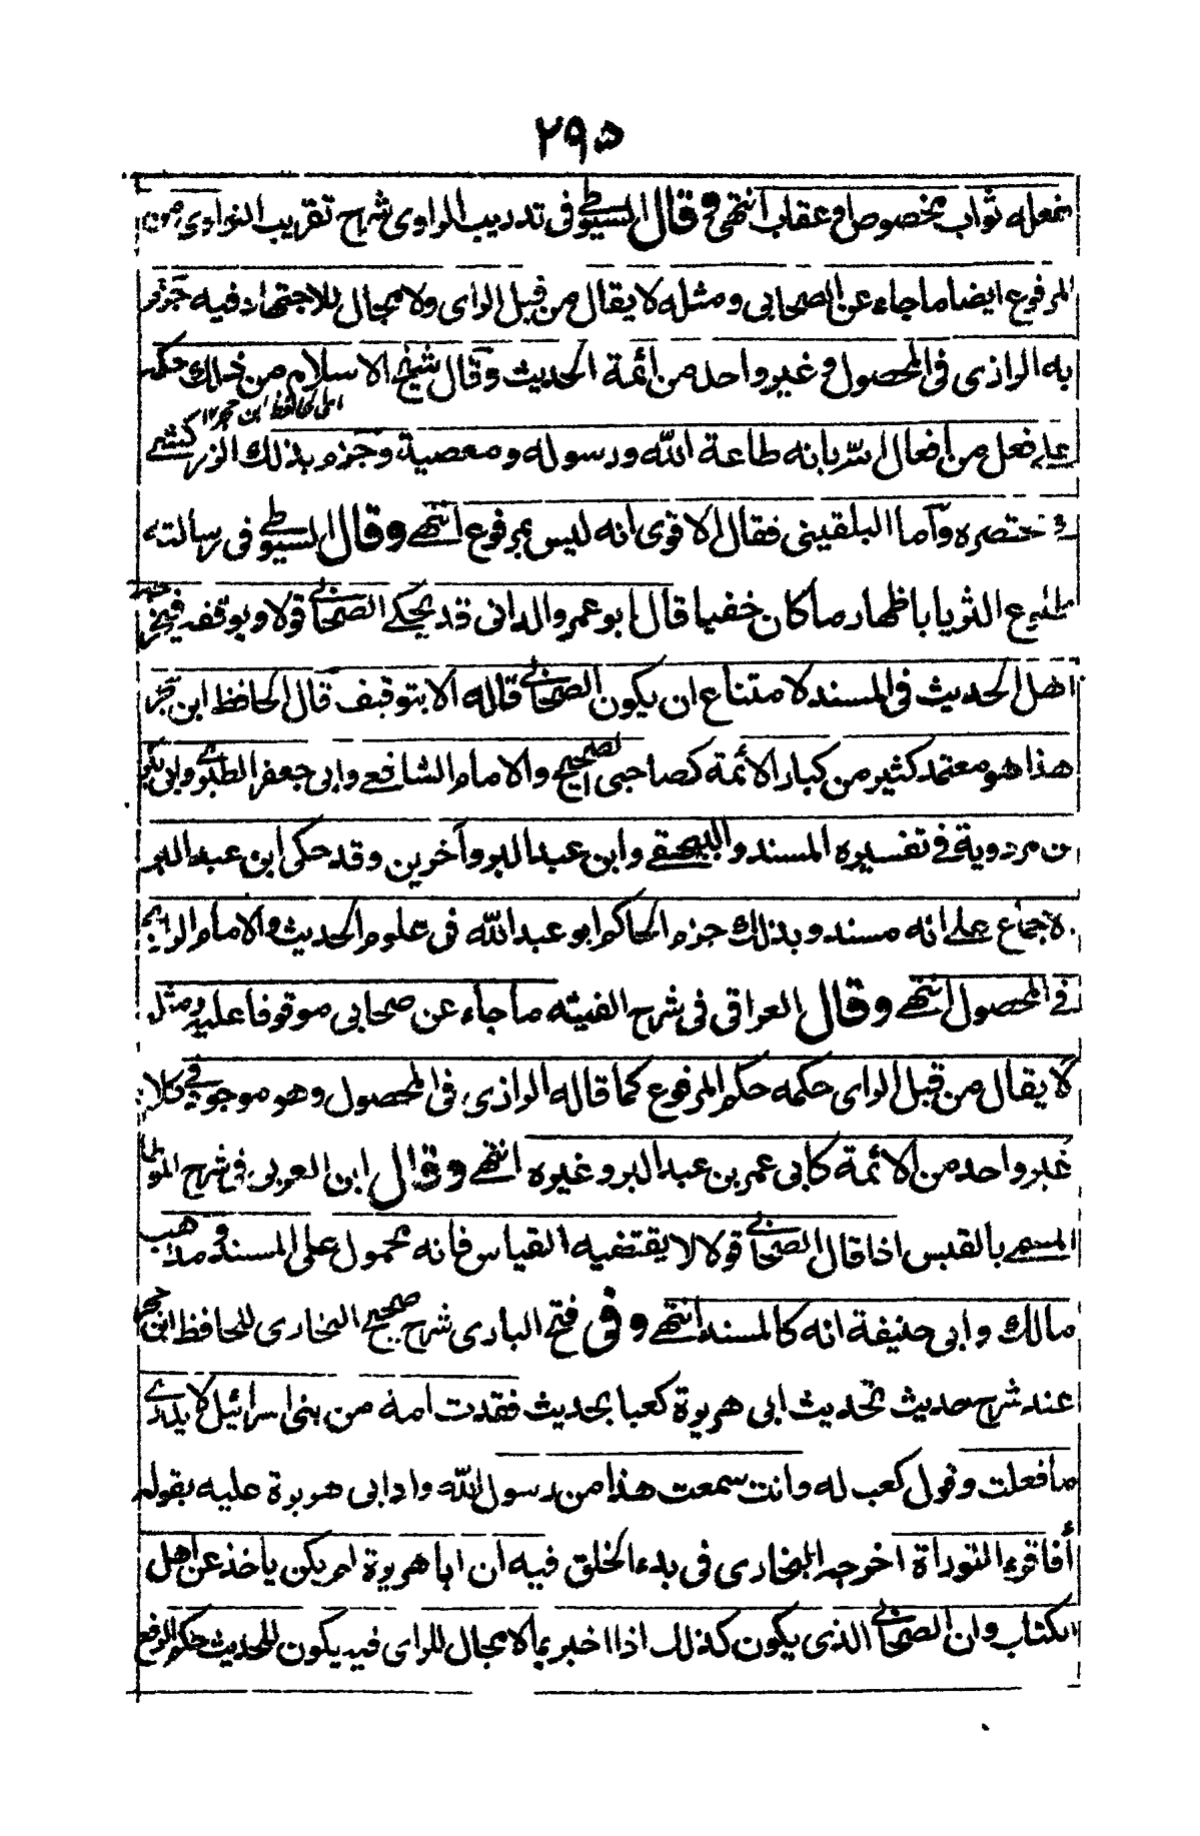 ۲۹۵
بفعله ثواب مخصوص او عقاب انتهى وقال السيوطي فى تدريب الراوى شرح تقريب النواوى ومن
المرفوع ايضا ما جاء عن الصحابى ومثله لا يقال من قبل الراى ولا مجال للاجتهاد فيه جزم
به الرازى فى المحصول وغير واحد من ائمة الحديث وقال شيخ الاسلام من ذلك حكمه
اى الحافظ ابن حجر ۱۲
على فعل من افعال البر بانه طاعة الله ورسوله ومعصية وجزم بذلك الزركشي
فى مختصره وأما البلقينى فقال الاقوى انه ليس بمرفوع انتهى وقال السيوطي فى رسالته
طلوع الثريا باظهار ما كان خفيا قال ابو عمرو الدانى قد يحكى الصحابي قولا ويوقفه فيخرجه
اهل الحديث فى المسند لامتناع ان يكون الصحابي قاله الا بتوقيف قال الحافظ ابن حجر
هذا هو معتمد كثير من كبار الائمة كصاحبى الصحيح والامام الشافعي وابى جعفر الطبري وابى بكر
بن مردوية في تفسيره المسند والبيهقي وابن عبد البر وآخرين وقد حكى ابن عبد البر
الاجماع على انه مسند وبذلك جزم الحاكم ابو عبد الله فى علوم الحديث والامام الرازى
في المحصول انتهى وقال العراقى فى شرح الفيته ما جاء عن صحابى موقوفا عليه ومثله
لا يقال من قبل الراى حكمه حكم المرفوع كما قاله الرازى فى المحصول وهو موجود في كلام
غير واحد من الائمة كابى عمر بن عبد البر وغيره انتهى وقال ابن العربى فى شرح الموطا
المسمى بالقبس اذا قال الصحابي قولا لا يقتضيه القياس فانه محمول على المسند ومذهب
مالك وابى حنيفة انه كالمسند انتهى وفى فتح البارى شرح صحيح البخارى للحافظ ابن حجر
عند شرح حديث تحديث ابى هريرة كعبا بحديث فقدت امة من بنى اسرائيل لا يدرى
ما فعلت وقول كعب له وانت سمعت هذا من رسول الله وارد ابى هريرة عليه بقوله
أفاقرء التوراة اخرجه البخارى فى بدء الخلق فيه ان ابا هريرة لم يكن ياخذ عن اهل
الكتاب وان الصحابي الذى يكون كذلك اذا اخبر بما لا مجال للراى فيه يكون للحديث حكم الرفع